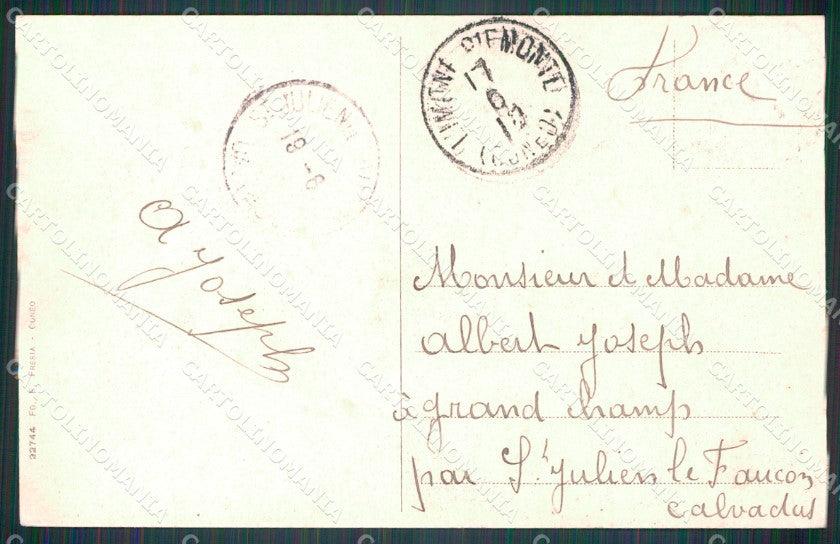 LIMONE PIEMONTE
(CUNEO)
17
6 09
ST JULIEN
19 - 6
France
A Joseph
Monsieur et Madame
Albert Joseph
à grand champ
par St Julien le Faucon
Calvados
22744 ED. F. FRESIA - CUNEO
CARTOLINOMANIA